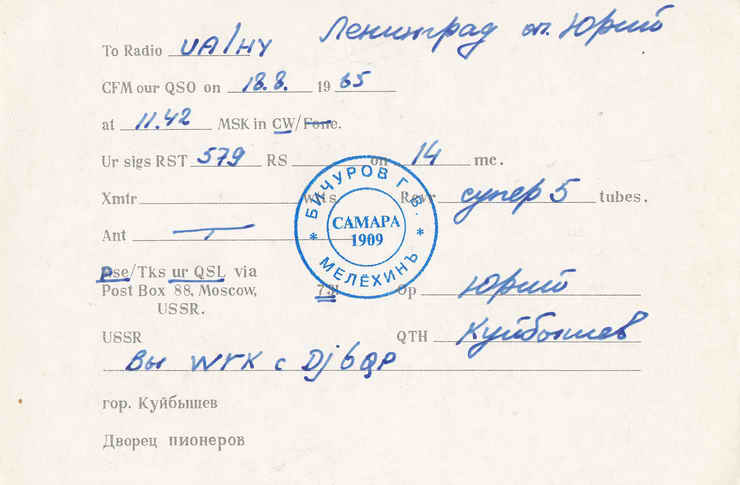 Ленинград оп. Юрий
To Radio UA1HY
CFM our QSO on 18.8. 1965
at 11.42 MSK in CW/Fone.
Ur sigs RST 579 RS on 14 mc.
Xmtr wtts. Rcvr супер 5 tubes.
Ant T
БИЧУРОВ Г. В.
САМАРА
1909
* МЕЛЁХИНЪ *
Pse/Tks ur QSL via
Post Box 88, Moscow, 73! Op Юрий
USSR.
USSR QTH Куйбышев
Вы WrK с Dj6QP
гор. Куйбышев
Дворец пионеров